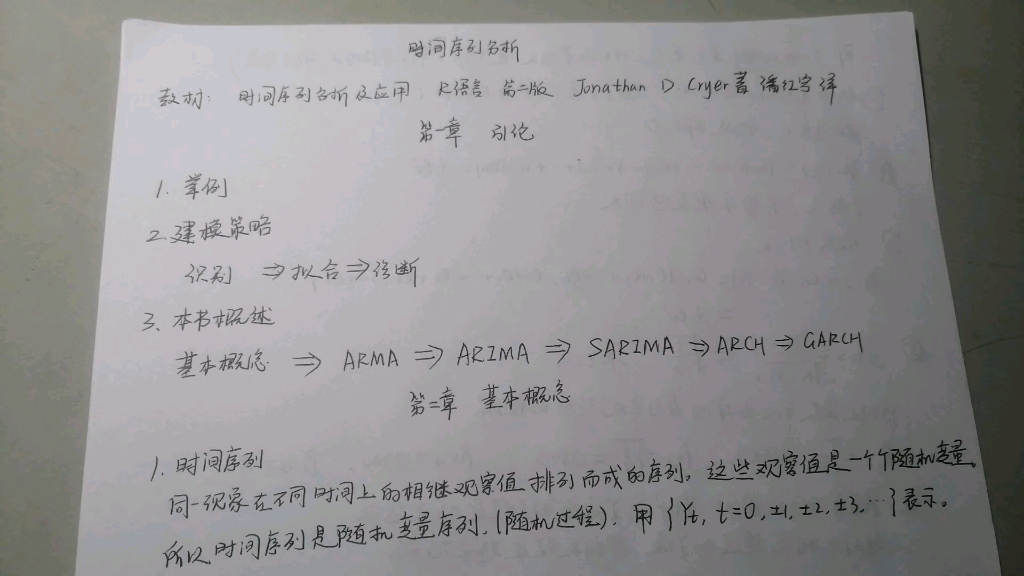 时间序列分析
教材： 时间序列分析及应用 R语言 第二版 Jonathan D Cryer著 潘红宇译
第一章 引论
1. 举例
2. 建模策略
识别 ⇒ 拟合 ⇒ 诊断
3. 本书概述
基本概念 ⇒ ARMA ⇒ ARIMA ⇒ SARIMA ⇒ ARCH ⇒ GARCH
第二章 基本概念
1. 时间序列
同一现象在不同时间上的相继观察值排列而成的序列。这些观察值是一个个随机变量。
所以时间序列是随机变量序列.(随机过程). 用 {Yt, t=0, ±1, ±2, ±3, …} 表示。